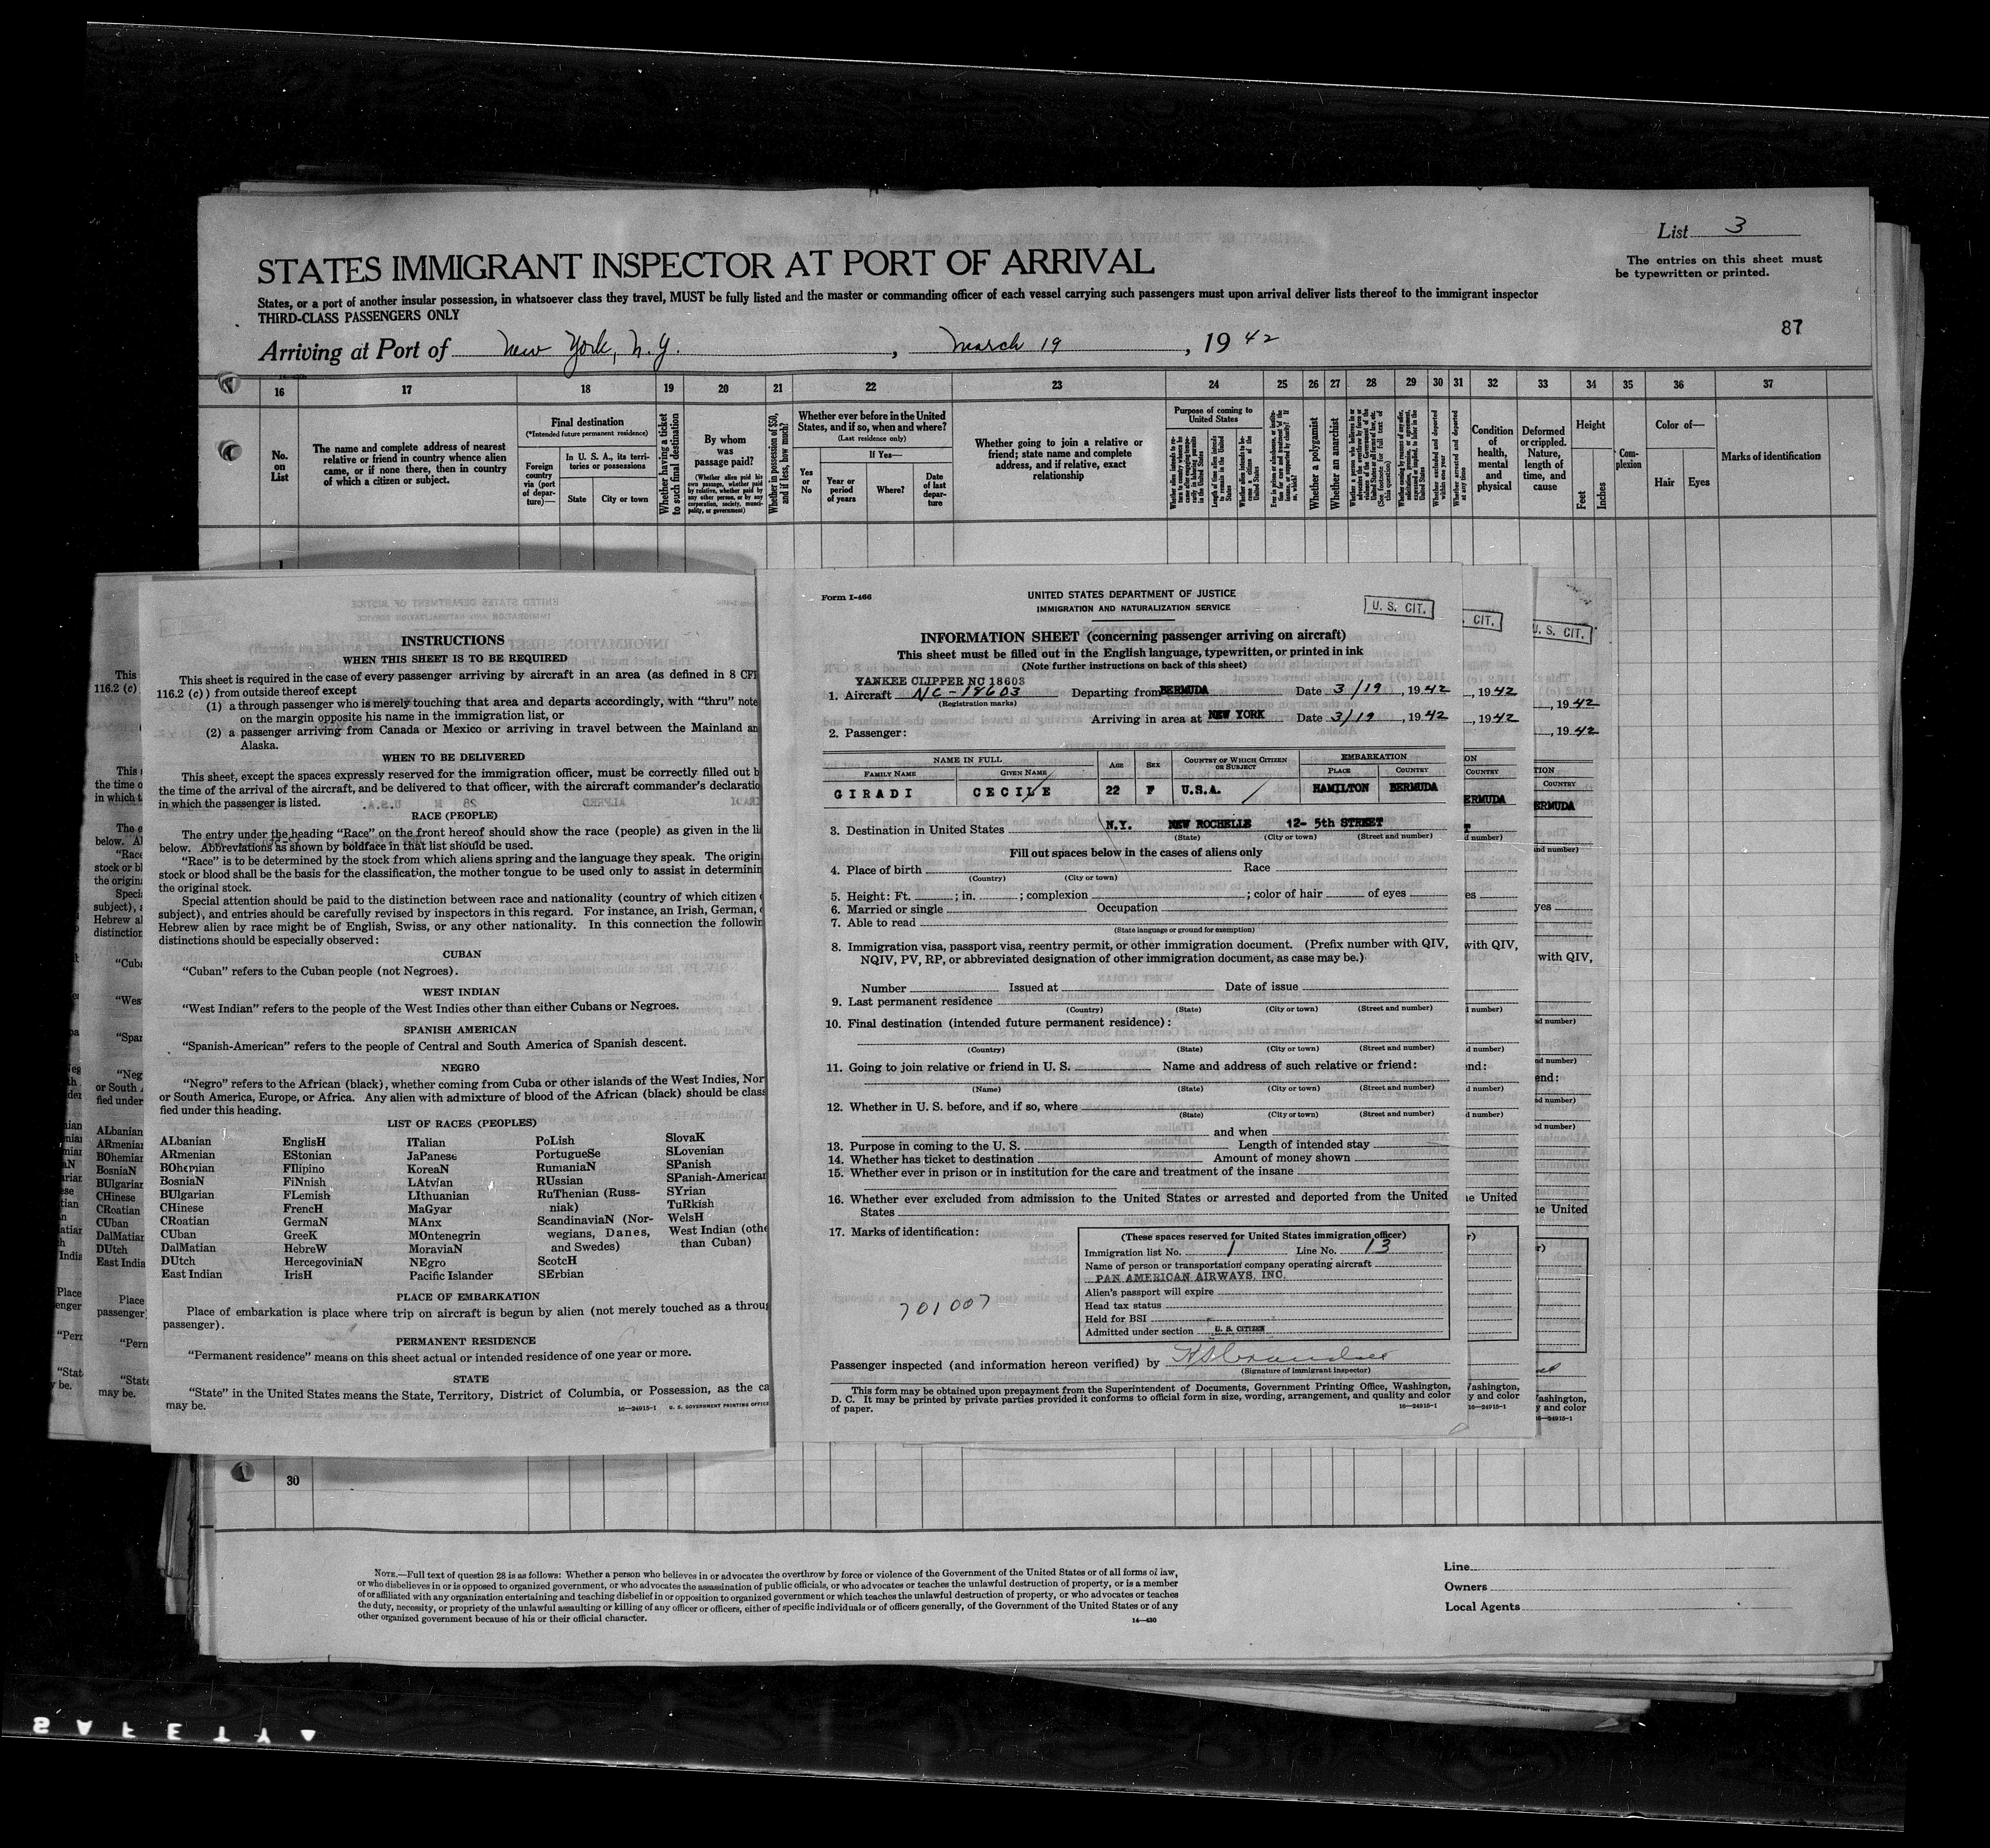 List 3
The entries on this sheet must
be typewritten or printed.
STATES IMMIGRANT INSPECTOR AT PORT OF ARRIVAL
States, or a port of another insular possession, in whatsoever class they travel, MUST be fully listed and the master or commanding officer of each vessel carrying such passengers must upon arrival deliver lists thereof to the immigrant inspector
THIRD-CLASS PASSENGERS ONLY
87
Arriving at Port of New York, N.Y. , March 19 , 1942
16 17 18 19 20 21 22 23 24 25 26 27 28 29 30 31 32 33 34 35 36 37
No.
on
List
The name and complete address of nearest
relative or friend in country whence alien
came, or if none there, then in country
of which a citizen or subject.
Final destination
(*Intended future permanent residence)
Foreign
country
via (port
of depar-
ture)—
In U. S. A., its terri-
tories or possessions
State
City or town
Whether having a ticket
to such final destination
By whom
was
passage paid?
(Whether alien paid his
own passage, whether paid
by relative, whether paid by
any other person, or by any
corporation, society, munici-
pality, or government)
Whether in possession of $50,
and if less, how much?
Whether ever before in the United
States, and if so, when and where?
(Last residence only)
Yes
or
No
If Yes—
Year or
period
of years
Where?
Date
of last
depar-
ture
Whether going to join a relative or
friend; state name and complete
address, and if relative, exact
relationship
Purpose of coming to
United States
Length of time alien intends
to remain in the United
States
Whether a polygamist
Whether an anarchist
Whether excluded and deported
within one year
Whether arrested and deported
at any time
Condition
of
health,
mental
and
physical
Deformed
or crippled.
Nature,
length of
time, and
cause
Height
Feet
Inches
Com-
plexion
Color of—
Hair
Eyes
Marks of identification
INSTRUCTIONS
WHEN THIS SHEET IS TO BE REQUIRED
This sheet is required in the case of every passenger arriving by aircraft in an area (as defined in 8 CFR
116.2 (c)) from outside thereof except
(1) a through passenger who is merely touching that area and departs accordingly, with “thru” note
on the margin opposite his name in the immigration list, or
(2) a passenger arriving from Canada or Mexico or arriving in travel between the Mainland an
Alaska.
WHEN TO BE DELIVERED
This sheet, except the spaces expressly reserved for the immigration officer, must be correctly filled out b
the time of the arrival of the aircraft, and be delivered to that officer, with the aircraft commander's declaratio
in which the passenger is listed.
RACE (PEOPLE)
The entry under the heading “Race” on the front hereof should show the race (people) as given in the li
below. Abbreviations as shown by boldface in that list should be used.
“Race” is to be determined by the stock from which aliens spring and the language they speak. The origin
stock or blood shall be the basis for the classification, the mother tongue to be used only to assist in determinin
the original stock.
Special attention should be paid to the distinction between race and nationality (country of which citizen
subject), and entries should be carefully revised by inspectors in this regard. For instance, an Irish, German,
Hebrew alien by race might be of English, Swiss, or any other nationality. In this connection the followin
distinctions should be especially observed:
CUBAN
“Cuban” refers to the Cuban people (not Negroes).
WEST INDIAN
“West Indian” refers to the people of the West Indies other than either Cubans or Negroes.
SPANISH AMERICAN
“Spanish-American” refers to the people of Central and South America of Spanish descent.
NEGRO
“Negro” refers to the African (black), whether coming from Cuba or other islands of the West Indies, Nor
or South America, Europe, or Africa. Any alien with admixture of blood of the African (black) should be class
fied under this heading.
LIST OF RACES (PEOPLES)
ALbanian
ARmenian
BOhemian
BosniaN
BUlgarian
CHinese
CRoatian
CUban
DalMatian
DUtch
East Indian
EnglisH
EStonian
FIlipino
FiNnish
FLemish
FrencH
GermaN
GreeK
HebreW
HercegoviniaN
IrisH
ITalian
JaPanese
KoreaN
LAtvian
LIthuanian
MaGyar
MAnx
MOntenegrin
MoraviaN
NEgro
Pacific Islander
PoLish
PortugueSe
RumaniaN
RUssian
RuThenian (Russ-
niak)
ScandinaviaN (Nor-
wegians, Danes,
and Swedes)
ScotcH
SErbian
SlovaK
SLovenian
SPanish
SPanish-American
SYrian
TuRkish
WelsH
West Indian (othe
than Cuban)
PLACE OF EMBARKATION
Place of embarkation is place where trip on aircraft is begun by alien (not merely touched as a throu
passenger).
PERMANENT RESIDENCE
“Permanent residence” means on this sheet actual or intended residence of one year or more.
STATE
“State” in the United States means the State, Territory, District of Columbia, or Possession, as the ca
may be.
16—24915-1 U. S. GOVERNMENT PRINTING OFFICE
Form I-466
UNITED STATES DEPARTMENT OF JUSTICE
IMMIGRATION AND NATURALIZATION SERVICE
U. S. CIT.
INFORMATION SHEET (concerning passenger arriving on aircraft)
This sheet must be filled out in the English language, typewritten, or printed in ink
(Note further instructions on back of this sheet)
YANKEE CLIPPER NC 18603
1. Aircraft NC-18603 Departing from BERMUDA Date 3/19, 1942
(Registration marks)
Arriving in area at NEW YORK Date 3/19, 1942
2. Passenger:
NAME IN FULL
FAMILY NAME
GIVEN NAME
AGE
SEX
COUNTRY OF WHICH CITIZEN
OR SUBJECT
EMBARKATION
PLACE
COUNTRY
GIRADI CECILE 22 F U.S.A. HAMILTON BERMUDA
3. Destination in United States N.Y. NEW ROCHELLE 12- 5th STREET
(State) (City or town) (Street and number)
Fill out spaces below in the cases of aliens only
4. Place of birth Race
(Country) (City or town)
5. Height: Ft. ; in. ; complexion ; color of hair of eyes
6. Married or single Occupation
7. Able to read
(State language or ground for exemption)
8. Immigration visa, passport visa, reentry permit, or other immigration document. (Prefix number with QIV,
NQIV, PV, RP, or abbreviated designation of other immigration document, as case may be.)
Number Issued at Date of issue
9. Last permanent residence
(Country) (State) (City or town) (Street and number)
10. Final destination (intended future permanent residence):
(Country) (State) (City or town) (Street and number)
11. Going to join relative or friend in U. S. Name and address of such relative or friend:
(Name) (State) (City or town) (Street and number)
12. Whether in U. S. before, and if so, where
(State) (City or town) (Street and number)
and when
13. Purpose in coming to the U. S. Length of intended stay
14. Whether has ticket to destination Amount of money shown
15. Whether ever in prison or in institution for the care and treatment of the insane
16. Whether ever excluded from admission to the United States or arrested and deported from the United
States
17. Marks of identification:
(These spaces reserved for United States immigration officer)
Immigration list No. 1 Line No. 13
Name of person or transportation company operating aircraft
PAN AMERICAN AIRWAYS, INC.
Alien's passport will expire
Head tax status
Held for BSI
Admitted under section U. S. CITIZEN
701007
Passenger inspected (and information hereon verified) by
(Signature of immigrant inspector)
This form may be obtained upon prepayment from the Superintendent of Documents, Government Printing Office, Washington,
D. C. It may be printed by private parties provided it conforms to official form in size, wording, arrangement, and quality and color
of paper.
16—24915-1
30
NOTE.—Full text of question 28 is as follows: Whether a person who believes in or advocates the overthrow by force or violence of the Government of the United States or of all forms of law,
or who disbelieves in or is opposed to organized government, or who advocates the assassination of public officials, or who advocates or teaches the unlawful destruction of property, or is a member
of or affiliated with any organization entertaining and teaching disbelief in or opposition to organized government or which teaches the unlawful destruction of property, or who advocates or teaches
the duty, necessity, or propriety of the unlawful assaulting or killing of any officer or officers, either of specific individuals or of officers generally, of the Government of the United States or of any
other organized government because of his or their official character.
14—430
Line
Owners
Local Agents
SAFETY